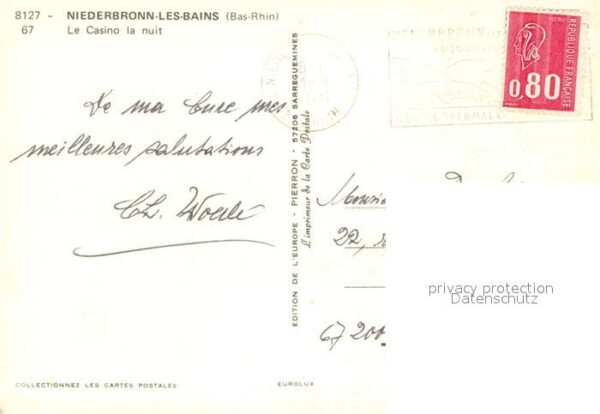 8127 - NIEDERBRONN-LES-BAINS (Bas-Rhin)
67 Le Casino la nuit
De ma Cure mes
meilleures salutations
EDITION DE L'EUROPE - PIERRON - 57206 SARREGUEMINES
L'imprimeur de la Carte Postale
REPUBLIQUE FRANÇAISE
0,80
THERMALE
Monsieur
22,
67200
privacy protection
Datenschutz
COLLECTIONNEZ LES CARTES POSTALES
EUROLUX